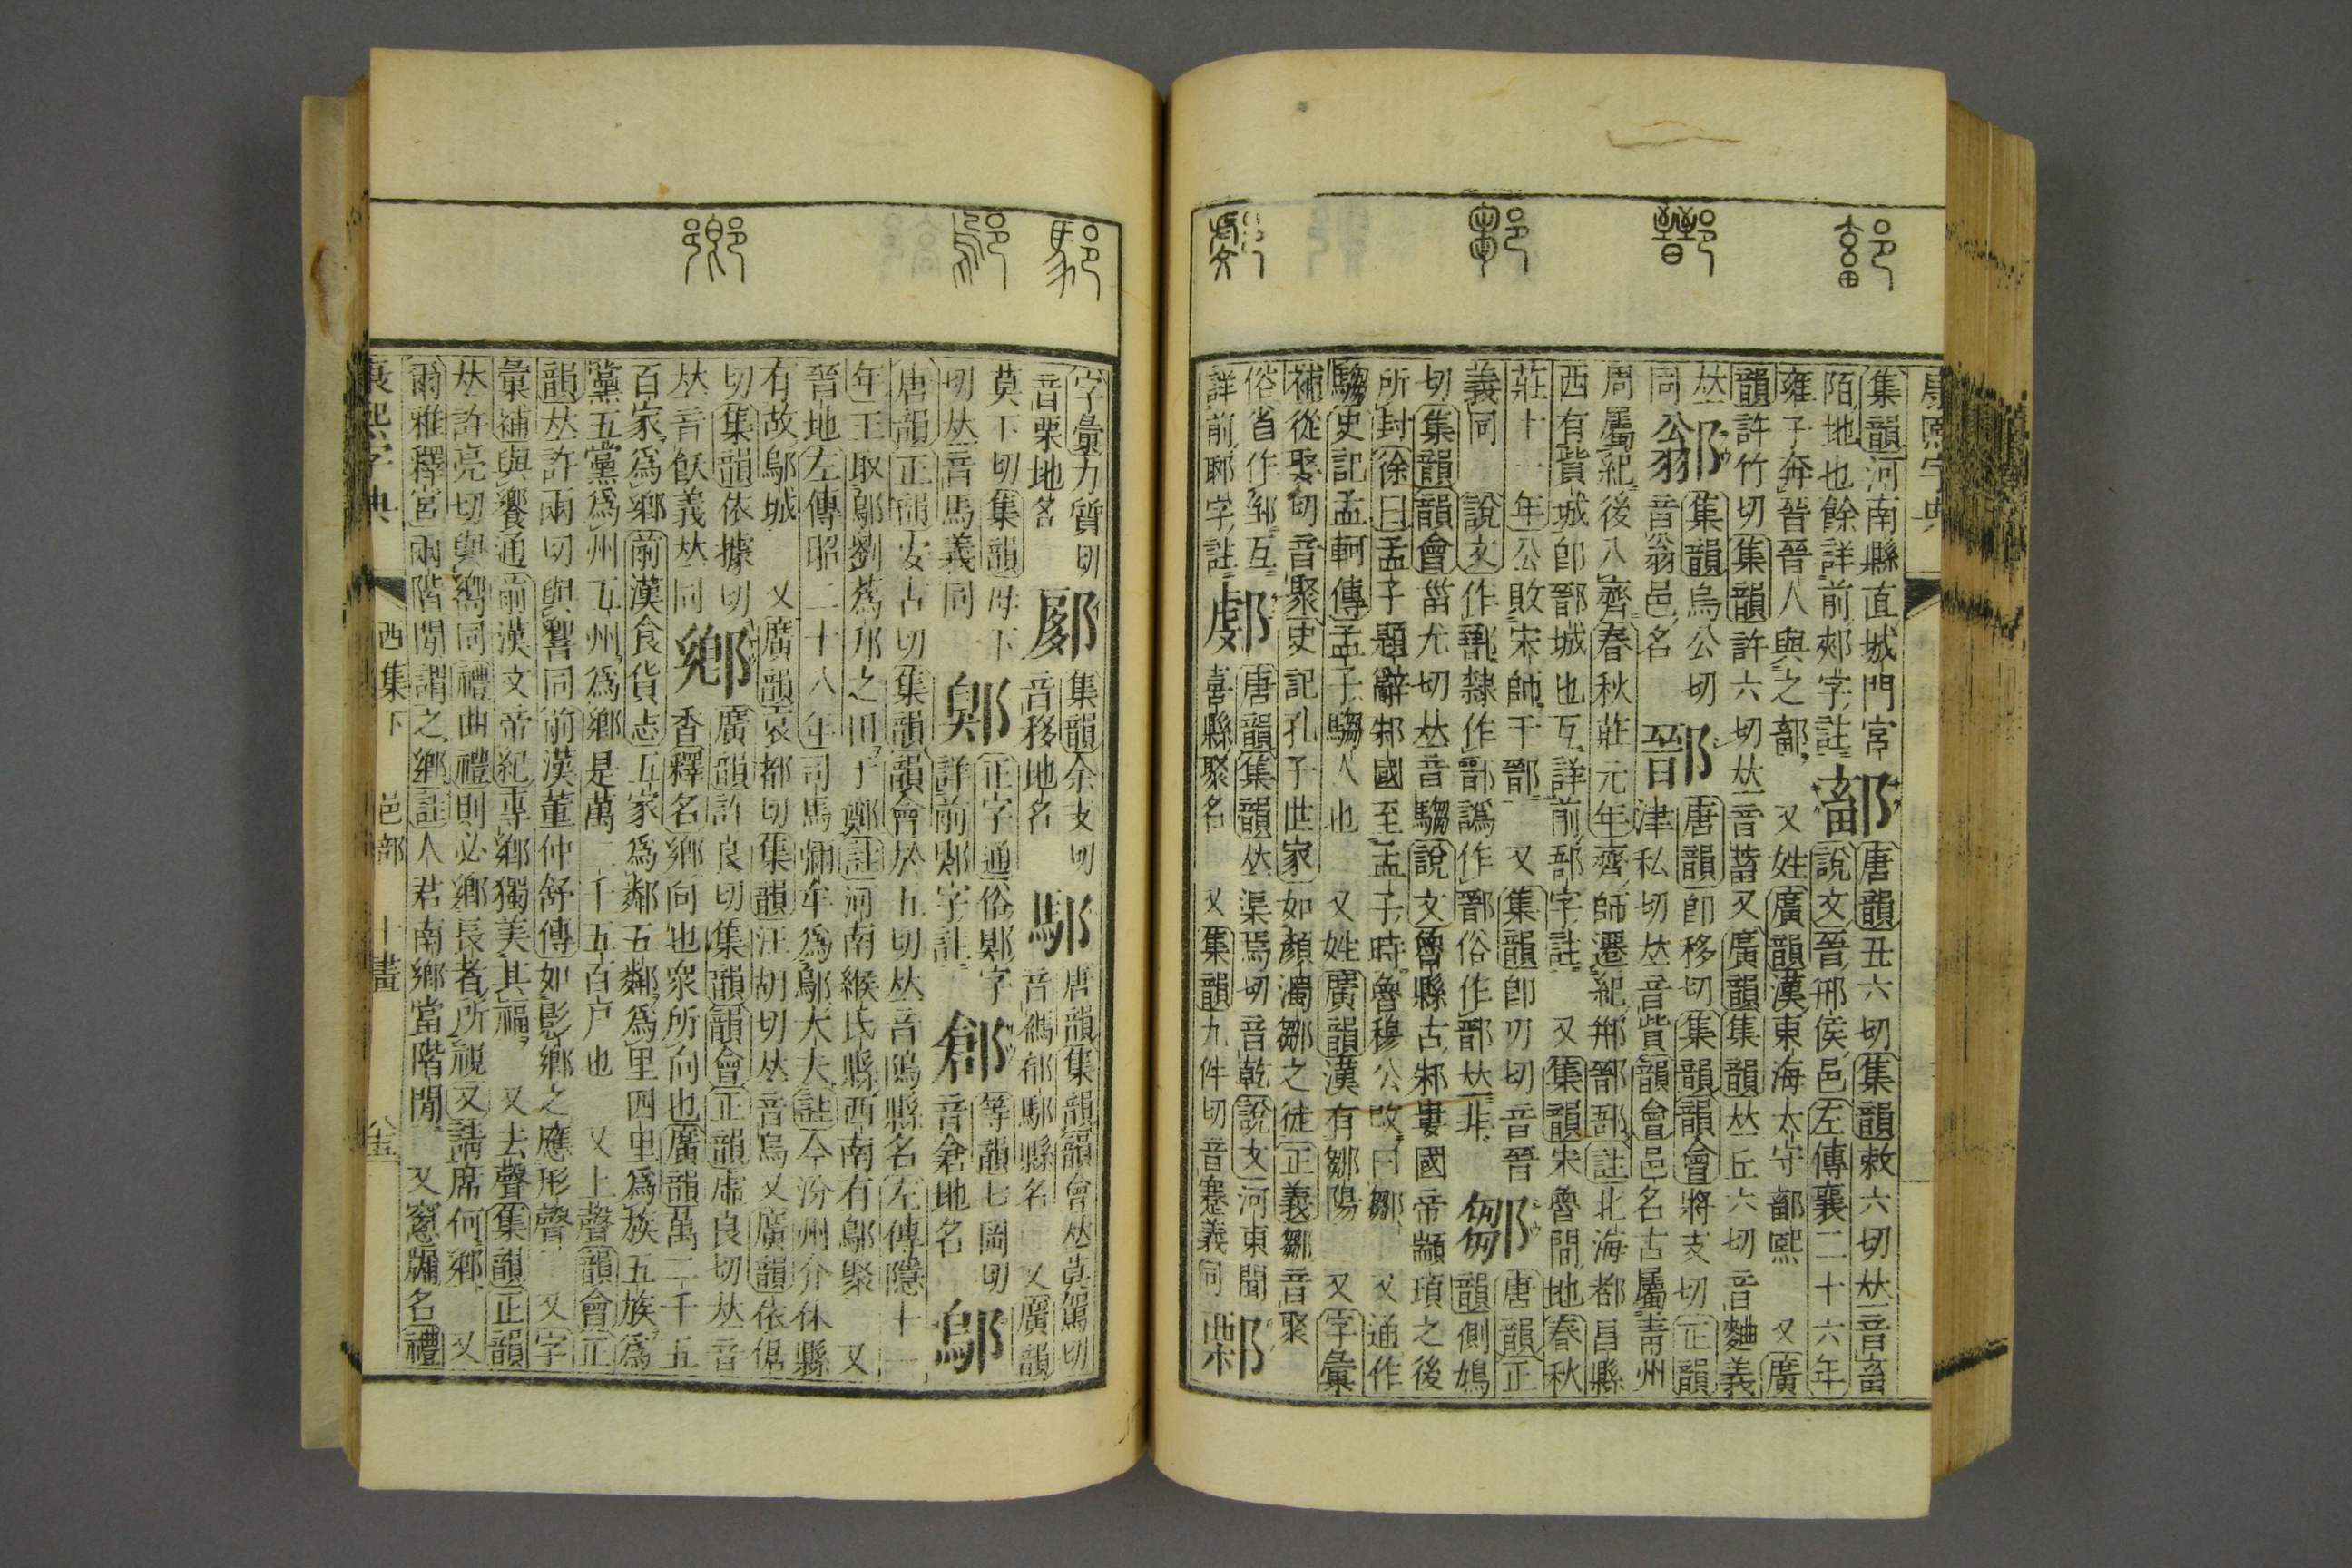 康熙字典
集韻河南縣直城門宮鄐唐韻丑六切集韻敕六切𠀤音畜
陌地也餘詳前郟字註 說文晉邢侯邑左傳襄二十六年
雍子奔晉晉人與之鄐 又姓廣韻漢東海太守鄐熙 又廣
韻許竹切集韻許六切𠀤音蓄又廣韻集韻𠀤丘六切音麯義
𠀤 集韻烏公切 鄑唐韻卽移切集韻韻會將支切正韻
同 音翁邑名 津私切𠀤音貲韻會邑名古屬靑州
周屬紀後入齊春秋莊元年齊師遷紀郱鄑郚註北海都昌縣
西有訾城卽鄑城也互詳前郚字註 又集韻宋魯閒地春秋
莊十一年公敗宋師于鄑 又集韻卽刃切音晉鄒唐韻正
義同 說文作 隸作鄑譌作 俗作 𠀤非 韻側鳩
切集韻韻會甾尤切𠀤音騶說文魯縣古邾婁國帝顓頊之後
所封徐曰孟子題辭邾國至孟子時魯穆公改曰鄒 又通作
騶史記孟軻傳孟子騶人也 又姓廣韻漢有鄒陽 又字彙
補從娶切音聚史記孔子世家如顏濁鄒之徒正義鄒音聚
俗省作 互 唐韻集韻𠀤渠焉切音乾說文河東聞
詳前郰字註 喜縣聚名 又集韻九件切音蹇義同
字彙力質切 集韻余支切 唐韻集韻韻會𠀤莫駕切
音栗地名 音移地名 音禡郁 縣名 又廣韻
莫下切集韻母下 正字通俗郹字 等韻七岡切
切𠀤音馬義同 詳前郹字註 音倉地名 鄔
唐韻正韻安古切集韻韻會於五切𠀤音隖縣名左傳隱十一
年王取鄔劉蒍邘之田于鄭註河南緱氏縣西南有鄔聚 又
晉地左傳昭二十八年司馬彌牟爲鄔大夫註今汾州介休縣
有故鄔城 又廣韻哀都切集韻汪胡切𠀤音烏又廣韻依倨
切集韻依據切鄉廣韻許良切集韻韻會正韻虛良切𠀤音
𠀤音飫義𠀤同 香釋名鄉向也衆所向也廣韻萬二千五
百家爲鄉前漢食貨志五家爲鄰五鄰爲里四里爲族五族爲
黨五黨爲州五州爲鄉是萬二千五百戸也 又上聲韻會正
韻𠀤許兩切與響同前漢董仲舒傳如影鄉之應形聲 又字
彙補與饗通前漢文帝紀專鄉獨美其福 又去聲集韻正韻
𠀤許亮切與嚮同禮曲禮則必鄉長者所視又請席何鄉 又
爾雅釋宮兩階閒謂之鄉註人君南鄉當階閒 又窻牖名禮
康熙字典 酉集下 邑部 十畫